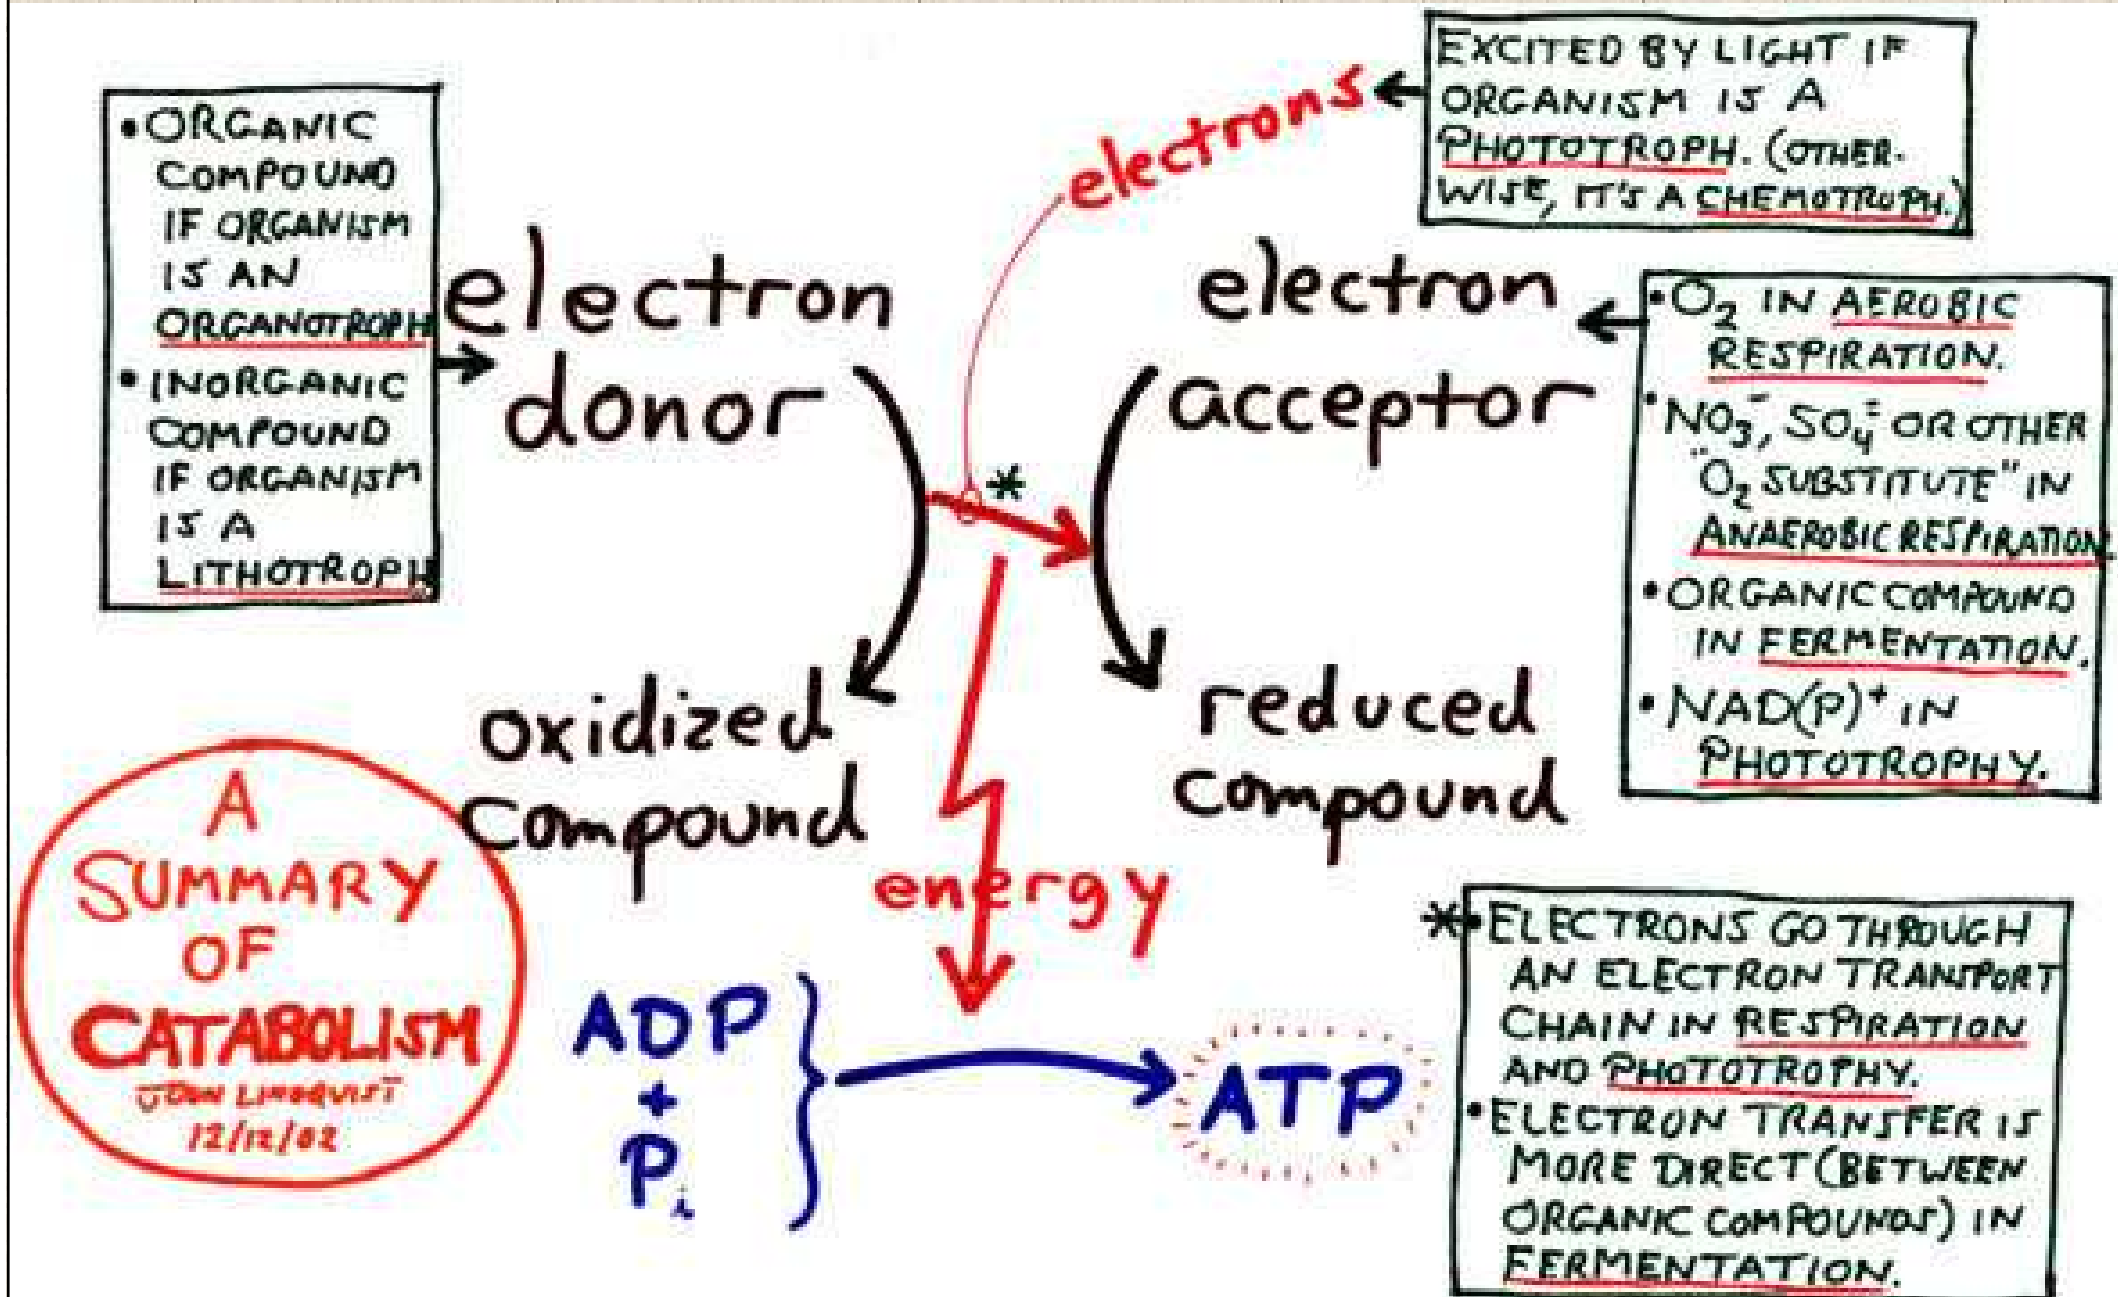 • ORGANIC
COMPOUND
IF ORGANISM
IS AN
ORGANOTROPH
• INORGANIC
COMPOUND
IF ORGANISM
IS A
LITHOTROPH
electron
donor
electrons
EXCITED BY LIGHT IF
ORGANISM IS A
PHOTOTROPH. (OTHER-
WISE, IT'S A CHEMOTROPH.)
electron
acceptor
• O₂ IN AEROBIC
RESPIRATION.
• NO₃⁻, SO₄⁼ OR OTHER
"O₂ SUBSTITUTE" IN
ANAEROBIC RESPIRATION.
• ORGANIC COMPOUND
IN FERMENTATION.
• NAD(P)⁺ IN
PHOTOTROPHY.
*
oxidized
compound
reduced
compound
energy
A
SUMMARY
OF
CATABOLISM
JOHN LINDQUIST
12/12/02
ADP
+
Pi
ATP
* • ELECTRONS GO THROUGH
AN ELECTRON TRANSPORT
CHAIN IN RESPIRATION
AND PHOTOTROPHY.
• ELECTRON TRANSFER IS
MORE DIRECT (BETWEEN
ORGANIC COMPOUNDS) IN
FERMENTATION.